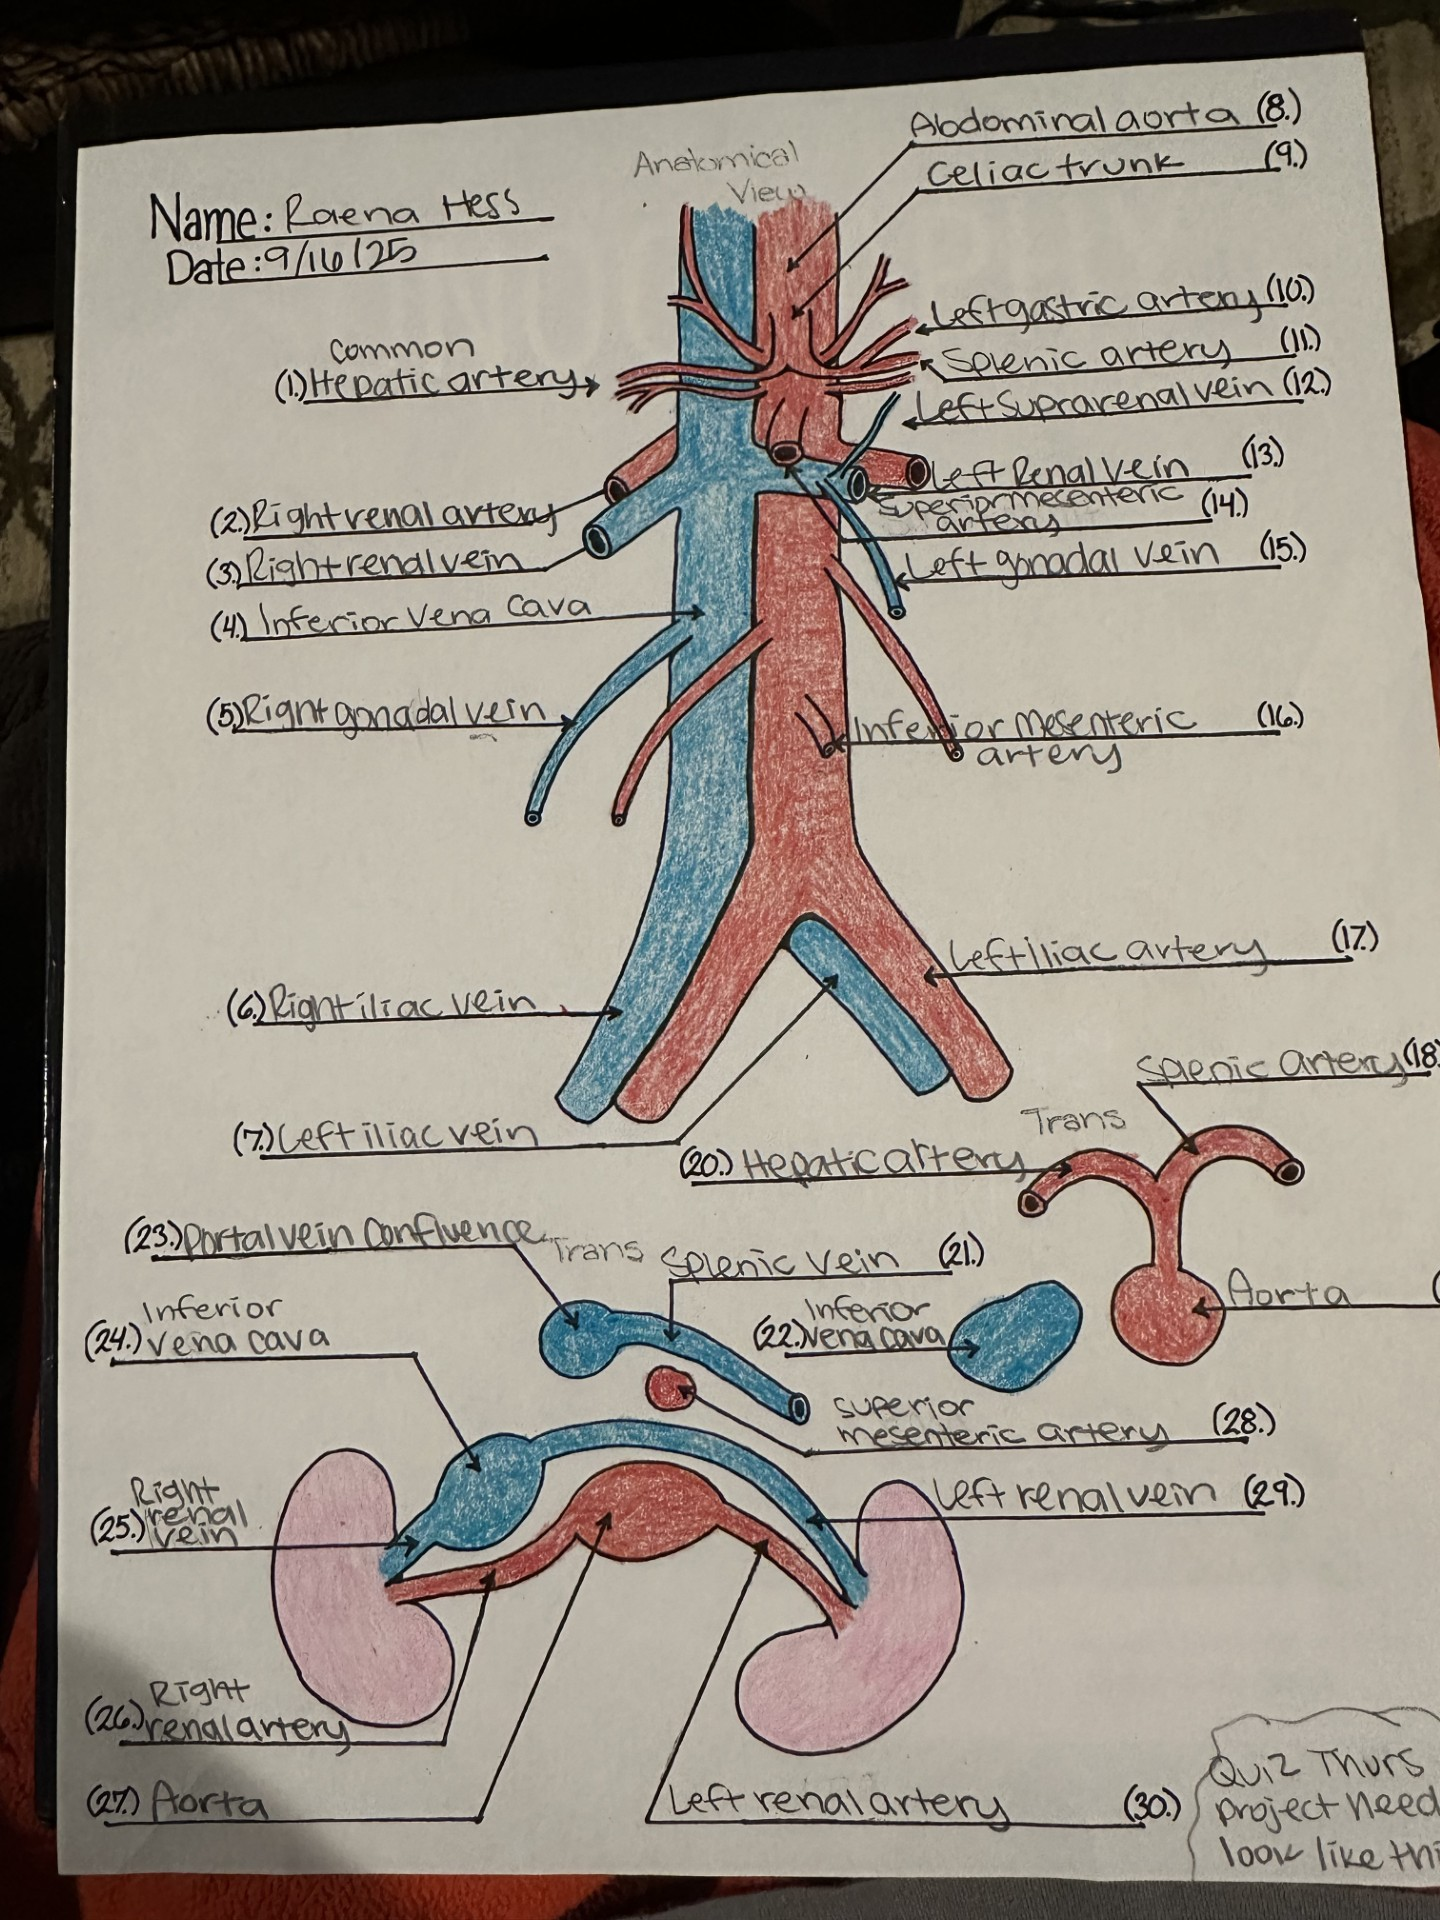 Abdominal aorta (8.)
Celiac trunk (9.)
Anatomical
View
Name: Raena Hess
Date: 9/16/25
Left gastric artery (10.)
Common
(1.) Hepatic artery
Splenic artery (11.)
Left Suprarenal vein (12.)
Left Renal Vein (13.)
(2.) Right renal artery
Superior mesenteric
artery (14.)
(3.) Right renal vein
Left gonadal vein (15.)
(4.) Inferior Vena Cava
(5.) Right gonadal vein
Inferior Mesenteric (16.)
artery
Left iliac artery (17.)
(6.) Right iliac vein
(7.) Left iliac vein
Splenic artery (18
Trans
(20.) Hepatic artery
(23.) Portal vein Confluence
Trans
Splenic vein (21.)
Aorta (
Inferior
(22.) vena cava
Inferior
(24.) vena cava
superior
mesenteric artery (28.)
Right
(25.) renal
vein
Left renal vein (29.)
Right
(26.) renal artery
(27.) Aorta
Left renal artery (30.)
Quiz Thurs
project need
look like thi